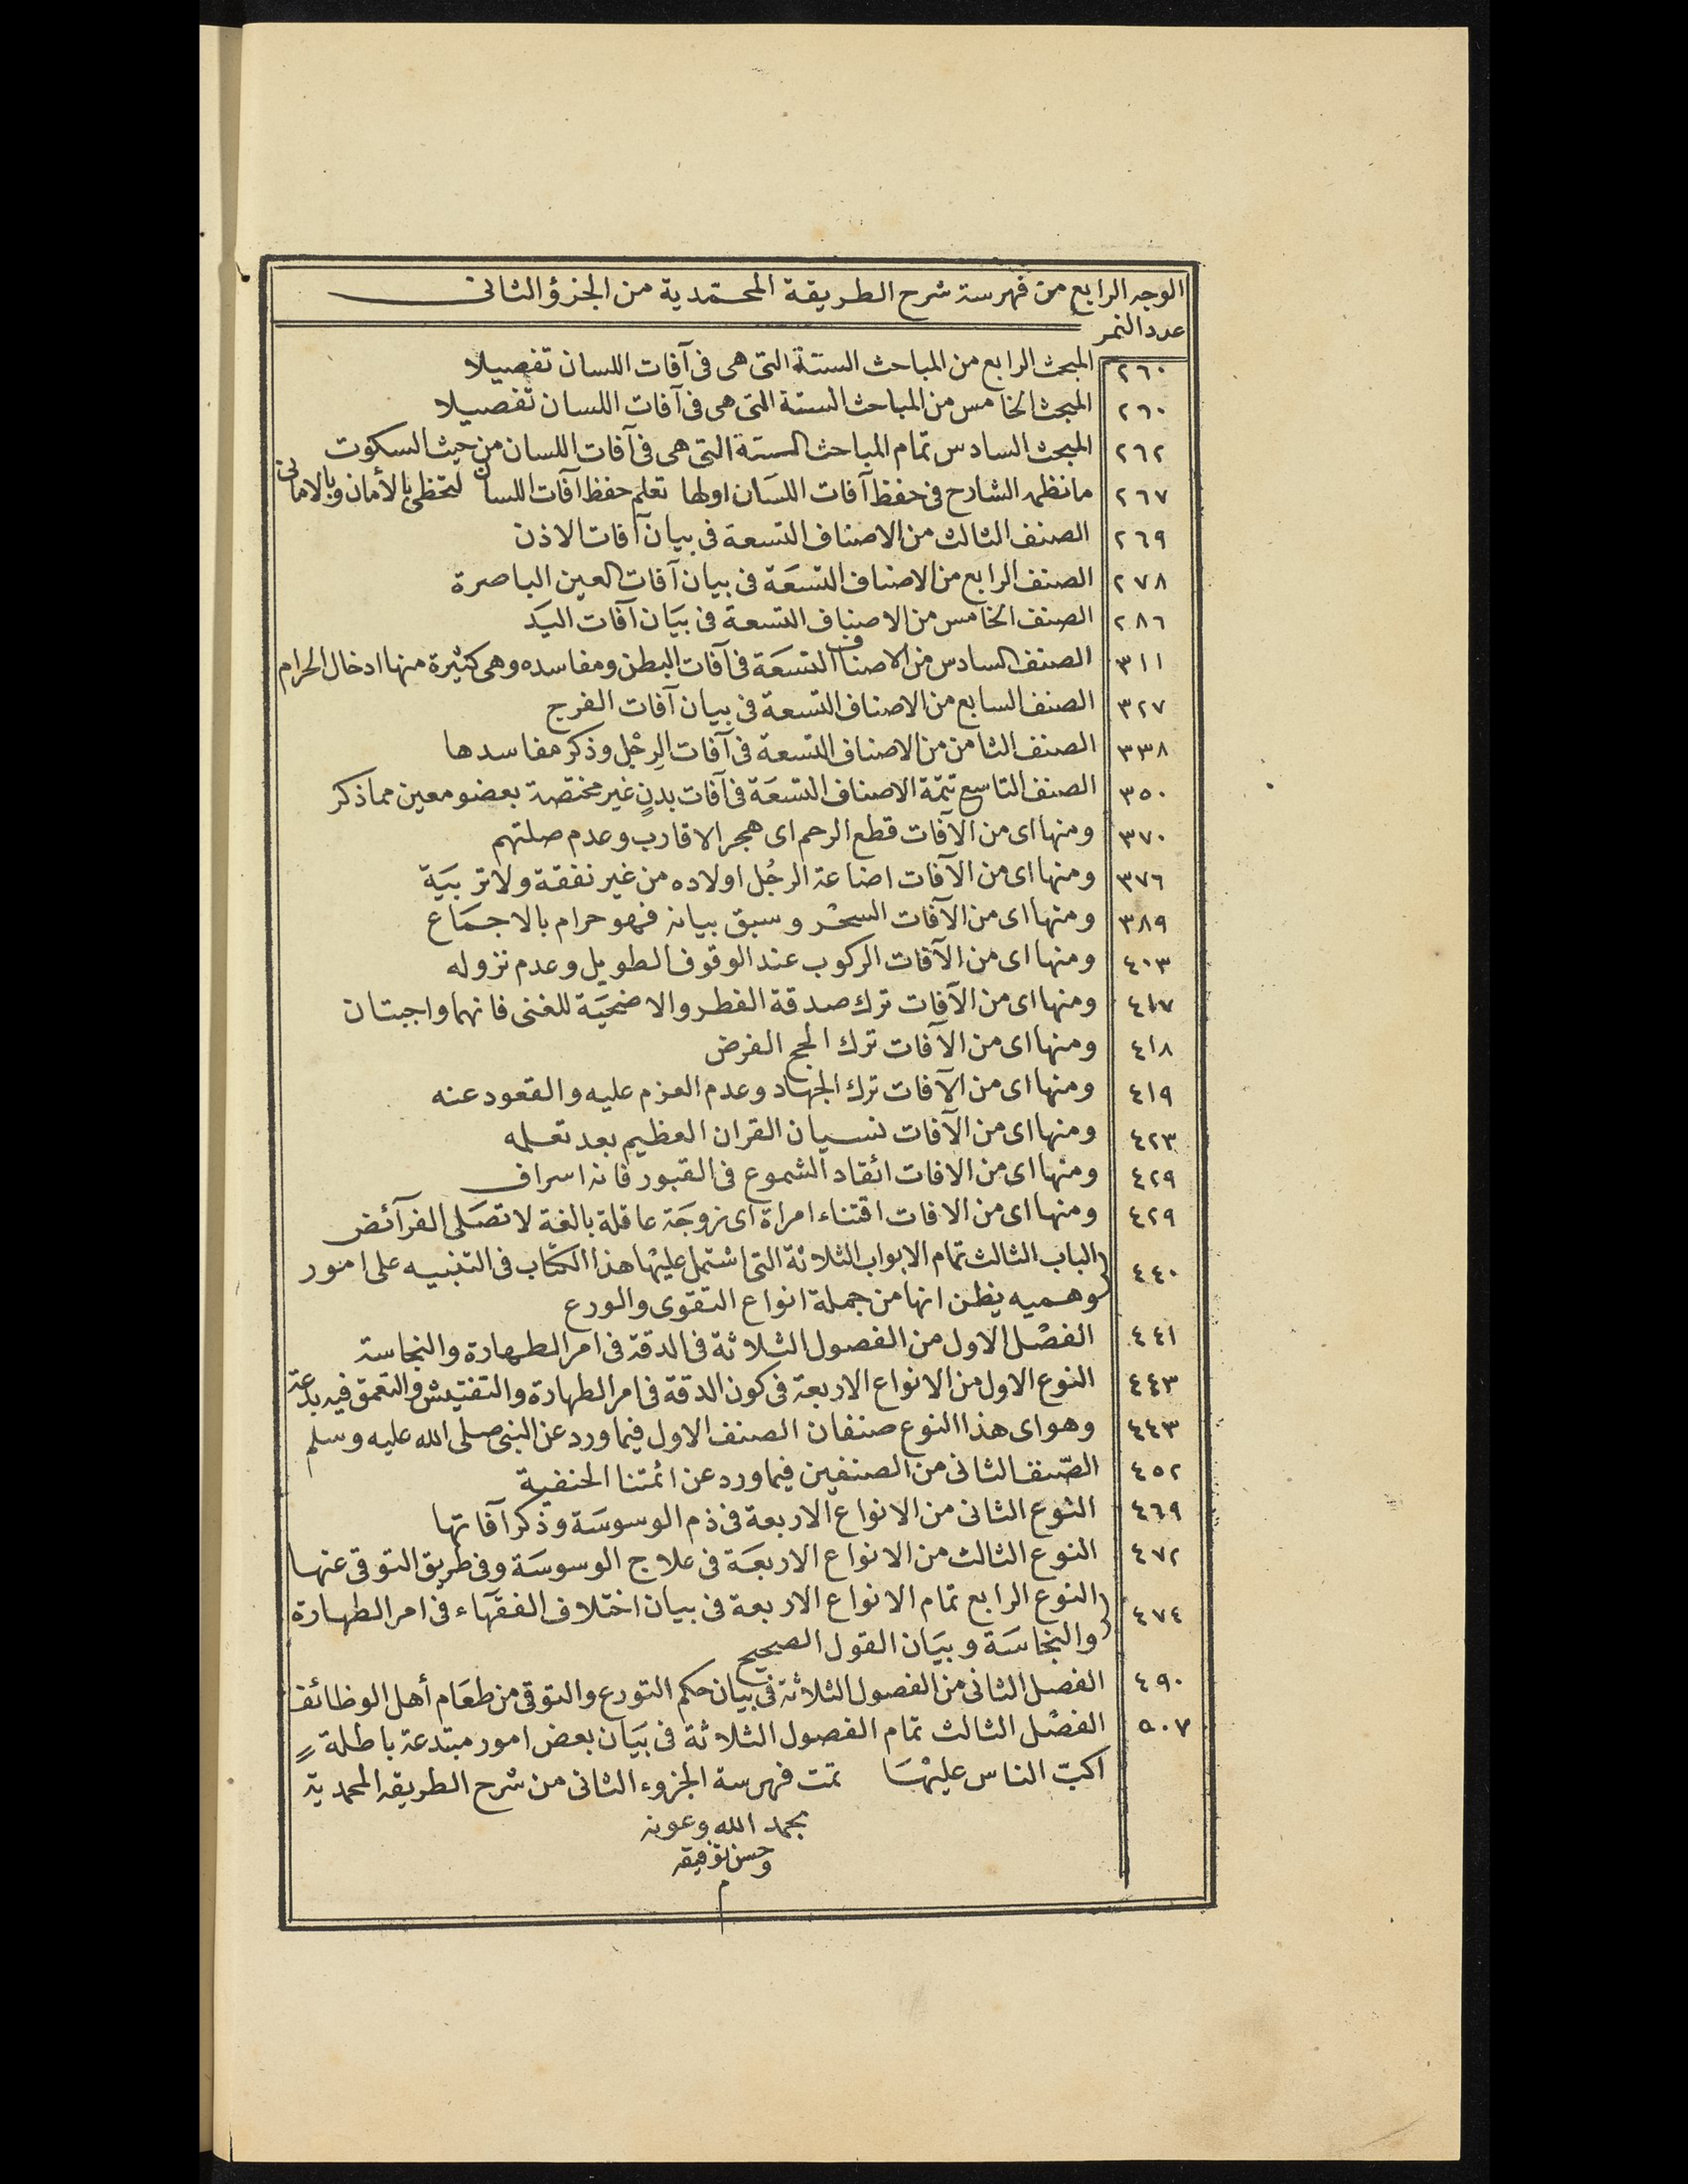 الوجه الرابع من فهرسة شرح الطريقة المحمّدية من الجزؤ الثانى
عدد النمر
٢٦٠ المبحث الرابع من المباحث الستة التى هى فى آفات اللسان تفصيلا
٢٦٠ المبحث الخامس من المباحث الستة التى هى فى آفات اللسان تفصيلا
٢٦٢ المبحث السادس تمام المباحث الستة التى هى فى آفات اللسان من حيث السكوت
٢٦٧ مانظمه الشارح فى حفظ آفات اللسَان اولها تعلم حفظ آفات اللسان لتحظى بالأمان وبالامانى
٢٦٩ الصنف الثالث من الاصناف التسعة فى بيان آفات الاذن
٢٧٨ الصنف الرابع من الاصناف التسعَة فى بيان آفات العين الباصرة
٢٨٦ الصنف الخامس من الاصناف التسعة فى بيَان آفات اليَد
٣١١ الصنف السادس من الاصناف التسعَة فى آفات البطن ومفاسده وهى كثيرة منها ادخال الحرام
٣٢٧ الصنف السابع من الاصناف التسعة فى بيان آفات الفرج
٣٣٨ الصنف الثامن من الاصناف التسعة فى آفات الرِجْل وذكر مفاسدها
٣٥٠ الصنف التاسع تتمّة الاصناف التسعَة فى آفات بدنٍ غير مختصة بعضو معين مماذكر
٣٧٠ ومنها اى من الآفات قطع الرحم اى هجر الاقارب وعدم صلتهم
٣٧٦ ومنها اى من الآفات اضاعة الرجُل اولاده من غير نفقة ولاتربيَة
٣٨٩ ومنها اى من الآفات السحْر وسبق بيانه فهو حرام بالاجمَاع
٤٠٣ ومنها اى من الآفات الركوب عند الوقوف الطويل وعدم نزوله
٤١٧ ومنها اى من الآفات ترك صدقة الفطر والاضحيَة للغنى فانهما واجبتان
٤١٨ ومنها اى من الآفات ترك الحج الفرض
٤١٩ ومنها اى من الآفات ترك الجهاد وعدم العزم عليه والقعود عنه
٤٢٣ ومنها اى من الآفات نسيان القران العظيم بعد تعلمه
٤٢٩ ومنها اى من الافات ائقاد الشموع فى القبور فانه اسراف
٤٢٩ ومنها اى من الافات اقتناء امراة اى زوجَة عاقلة بالغة لا تصَلى الفرآئض
٤٤٠ الباب الثالث تمام الابواب الثلاثة التى اشتمل عليْها هذا الكتاب فى التنبيه على امور
وهميه يظن انها من جملة انواع التقوى والورع
٤٤١ الفصْل الاول من الفصول الثلاثة فى الدقة فى امر الطهارة والنجاسة
٤٤٣ النوع الاول من الانواع الاربعة فى كون الدقة فى امر الطهارة والتفتيش والتعمق فيه بدعة
٤٤٣ وهو اى هذا النوع صنفان الصنف الاول فيما ورد عن النبى صلى الله عليه وسلم
٤٥٢ الصّنف الثانى من الصنفين فيما ورد عن ائمتنا الحنفية
٤٦٩ النوع الثانى من الانواع الاربعة فى ذم الوسوسَة وذكر آفاتها
٤٧٢ النوع الثالث من الانواع الاربعَة فى علاج الوسوسَة وفى طريق التوقى عنها
٤٧٤ النوع الرابع تمام الانواع الاربعة فى بيان اختلاف الفقهَاء فى امر الطهارة
والنجاسَة وبيَان القول الصحيح
٤٩٠ الفصل الثانى من الفصول الثلاثة فى بيان حكم التورع والتوقى من طعَام أهل الوظائف
٥٠٧ الفصْل الثالث تمام الفصول الثلاثة فى بيَان بعض امور مبتدعة باطلةٍ
اكبّ الناس عليْهَا تمت فهرسة الجزوء الثانى من شرح الطريقه المحمدية
بحمد الله وعونه
وحسن توفيقه
م